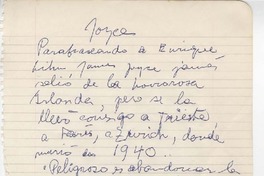 Joyce
Parafraseando a Enrique
Lihn James Joyce jamás
salió de la horrorosa
Irlanda, pero se la
llevó consigo a Trieste,
a París, a Zurich, donde
murió en 1940..
Peligroso es abandonar la